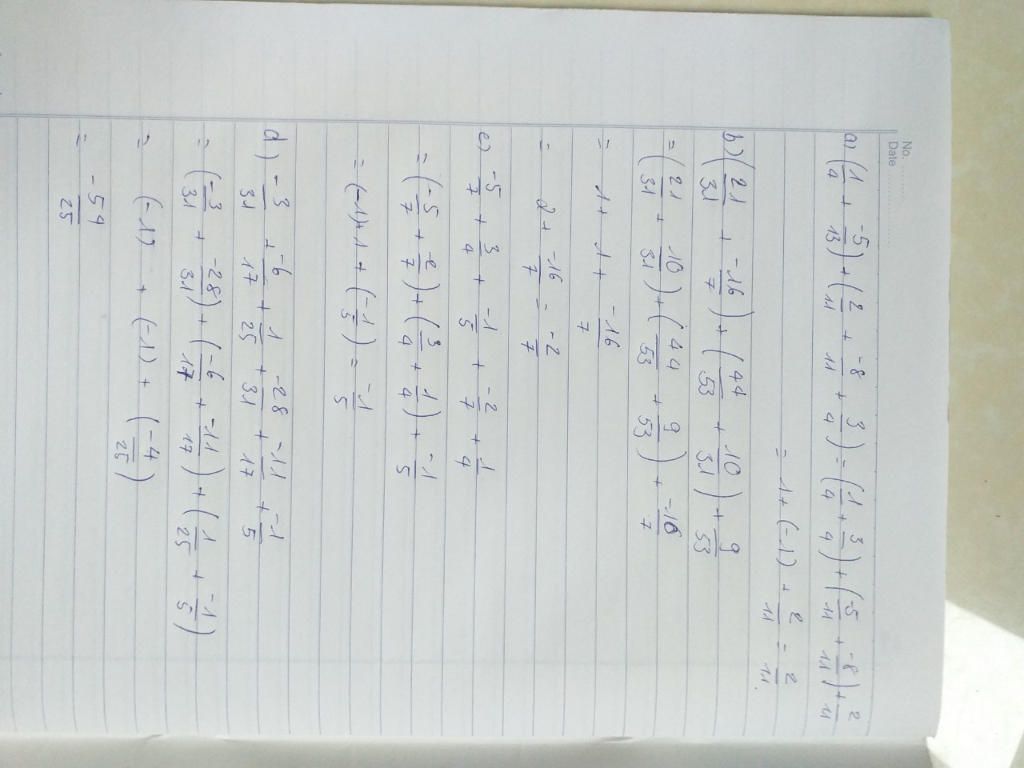 No.
Date
a) (1/4 + -5/13) + (2/11 + -8/11 + 3/4) = (1/4 + 3/4) + (-5/11 + -8/11) + 2/11
= 1 + (-1) + 2/11 = 2/11.
b) (21/31 + -16/7) + (44/53 + 10/31) + 9/53
= (21/31 + 10/31) + (44/53 + 9/53) + -16/7
= 1 + 1 + -16/7
= 2 + -16/7 = -2/7
c) -5/7 + 3/4 + -1/5 + -2/7 + 1/4
= (-5/7 + -2/7) + (3/4 + 1/4) + -1/5
= (-1) + 1 + (-1/5) = -1/5
d) -3/31 + -6/17 + 1/25 + -28/31 + -11/17 + -1/5
= (-3/31 + -28/31) + (-6/17 + -11/17) + (1/25 + -1/5)
= (-1) + (-1) + (-4/25)
= -54/25